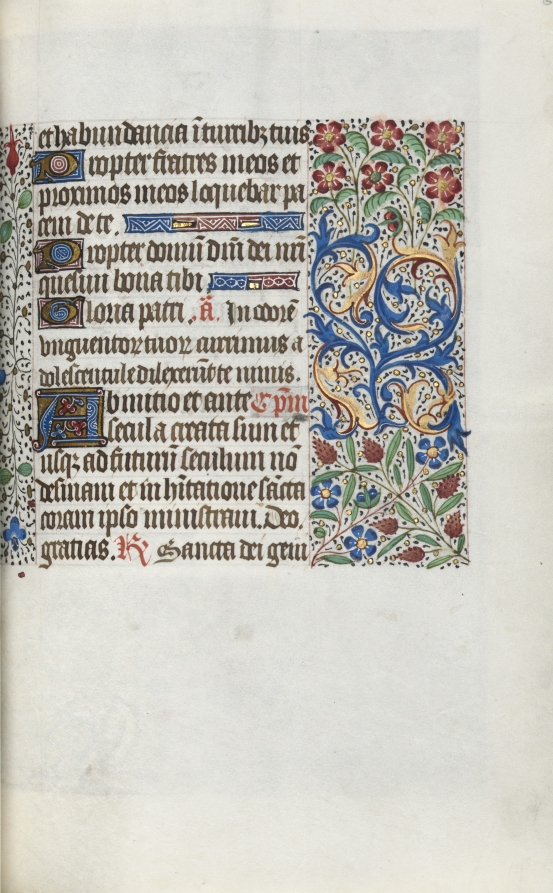 et habundancia ī turribꝫ tuis
Propter fratres meos et
proximos meos loquebar pa
cem de te.
Propter domū dn̄i dei nr̄i
quesiui bona tibi
Gloria patri. ā. In odorē
vnguentoꝝ tuoꝝ currimus a
dolescentule dilexerūt te nimis.
Ab initio et ante Cpm̄
secula creata sum et
usqꝫ ad futurū seculum nō
desinam et in hītatione sācta
coram ipso ministraui. Deo.
gratias. R Sancta dei geni